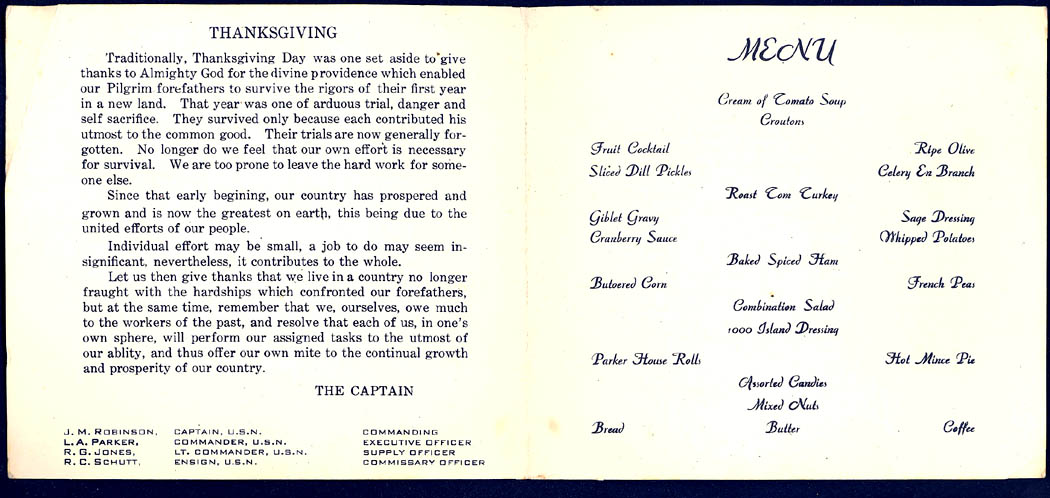 THANKSGIVING
Traditionally, Thanksgiving Day was one set aside to give
thanks to Almighty God for the divine providence which enabled
our Pilgrim forefathers to survive the rigors of their first year
in a new land. That year was one of arduous trial, danger and
self sacrifice. They survived only because each contributed his
utmost to the common good. Their trials are now generally for-
gotten. No longer do we feel that our own effort is necessary
for survival. We are too prone to leave the hard work for some-
one else.
Since that early begining, our country has prospered and
grown and is now the greatest on earth, this being due to the
united efforts of our people.
Individual effort may be small, a job to do may seem in-
significant, nevertheless, it contributes to the whole.
Let us then give thanks that we live in a country no longer
fraught with the hardships which confronted our forefathers,
but at the same time, remember that we, ourselves, owe much
to the workers of the past, and resolve that each of us, in one's
own sphere, will perform our assigned tasks to the utmost of
our ablity, and thus offer our own mite to the continual growth
and prosperity of our country.
THE CAPTAIN
J. M. ROBINSON, CAPTAIN, U.S.N. COMMANDING
L.A. PARKER, COMMANDER, U.S.N. EXECUTIVE OFFICER
R. G. JONES, LT. COMMANDER, U.S.N. SUPPLY OFFICER
R. C. SCHUTT, ENSIGN, U.S.N. COMMISSARY OFFICER
MENU
Cream of Tomato Soup
Croutons
Fruit Cocktail Ripe Olive
Sliced Dill Pickles Celery En Branch
Roast Tom Turkey
Giblet Gravy Sage Dressing
Cranberry Sauce Whipped Potatoes
Baked Spiced Ham
Butoered Corn French Peas
Combination Salad
1000 Island Dressing
Parker House Rolls Hot Mince Pie
Assorted Candies
Mixed Nuts
Bread Butter Coffee